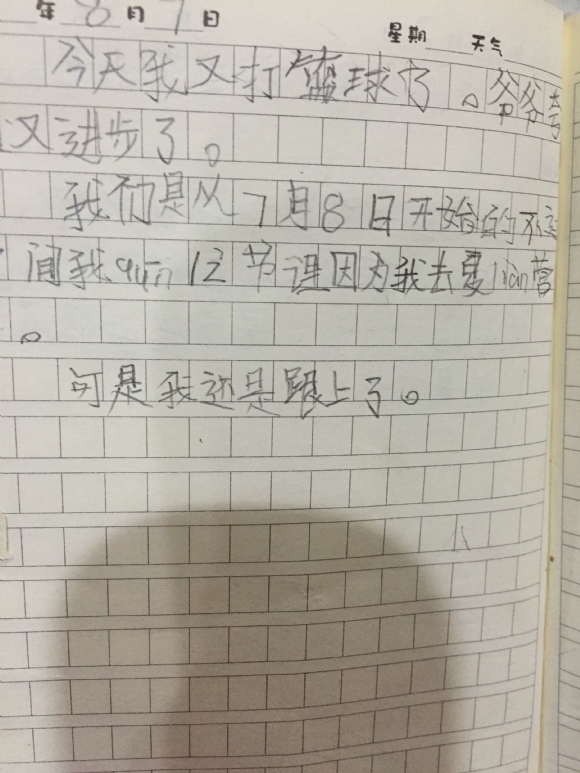 年 8 月 7 日 星期 天气
今天我又打篮球了。爷爷夸
又进步了。
我们是从7月8日开始的不
间我qun 12 节课因为我去夏lian营
。
可是我还是跟上了。